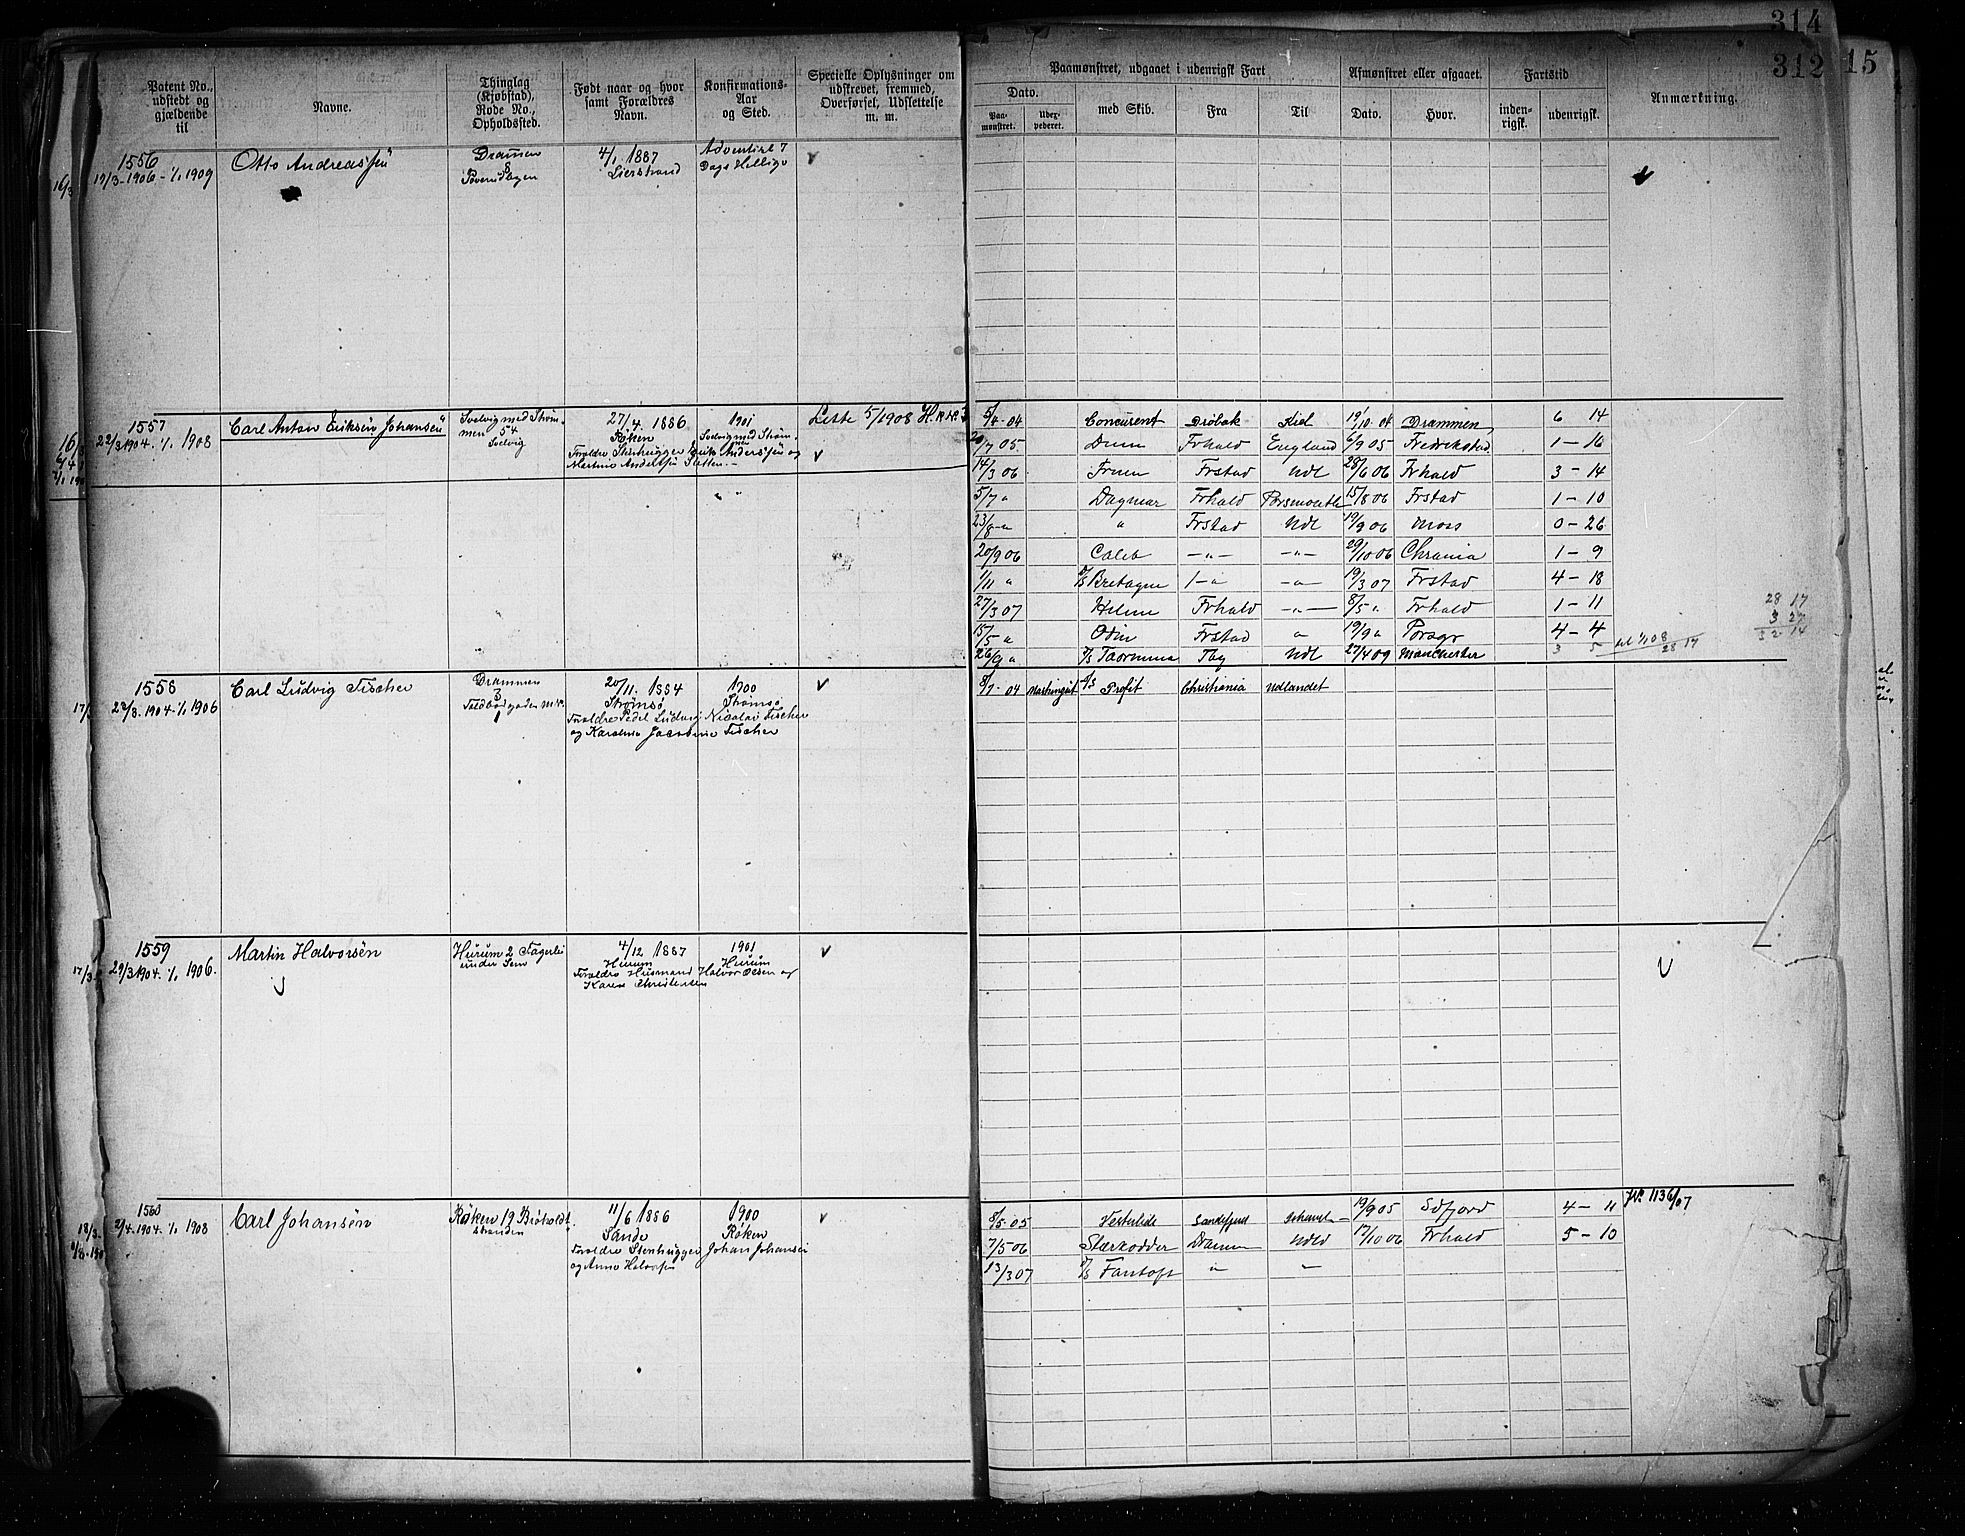 314
312
15
Patent No., udstedt og gjældende til
Navne.
Thinglag (Kjøbstad), Rode No., Opholdssted.
Født naar og hvor samt Forældres Navn.
Konfirmations-Aar og Sted.
Specielle Oplysninger om udskrevet, fremmed, Overførsel, Udslettelse m. m.
Paamønstret, udgaaet i udenrigsk Fart
Afmønstret eller afgaaet.
Fartstid
Anmærkning.
Dato.
Paa-mønstret.
Udex-pederet.
med Skib.
Fra
Til
Dato.
Hvor.
inden-rigsk.
udenrigsk.
1556
19/3-1906 - 1/1 1909
Otto Andreassen
Drammen
8
4/1 1887
Lierstrand
Adventist 7
Dags Hellige
1557
22/3 1904. 1/1 1908
Carl Anton Eriksen Johansen
Svelvig med Strøm-
men 54
Svelvig
27/4. 1886
Røken
1901
Svelvig med Strøm-
men
Foreldre Stenhugger Erik Anderssen og
5/1908
5/4-04 Concurent Drøbak Kiel 19/10-04 Drammen 6 14
20/7 05. Frhald England 6/9 05 Fredrikstad 1 - 16
14/3 06 Frstad Udl 28/6 06 Frhald 3 - 14
5/7 " Dagmar Frhald 15/8 06 Frstad 1 - 10
23/8 - " " Frstad Udl 19/9 06 Moss 0 - 26
20/9 06 Caleb - " - - " - 29/10 06 Chrania 1 - 9
1/11 " D/S Bretagne 1 - " - " - 19/3 07 Frstad 4 - 18
27/3 07 Frhald - " - 8/5 " Frhald 1 - 11
15/5 " Odin Frstad " 19/9 " Porsgr 4 - 4
26/9 " D/S Taormina Tbg Udl 27/4 09 Manchester 3 5
28 17
28 17
3 27
32 14
1558
23/3. 1904. 1/1 1906
Carl Ludvig Fischer
Drammen
3
1
20/11. 1884
Strømsø
1900
Strømsø
Foreldre Ludvig Nicolai Fischer
og Karoline Fischer
8/7-04 D/S Profit Christiania Udlandet
1559
29/3 1904. 1/1 1906.
Martin Halvorsen
Hurum 2 Fagerli
under Sem
4/12 1887
Hurum
1901
Hurum
Foreldre Husmand Halvor Olsen og
Karen Christensen
1560
2/4. 1904. 1/1 1908
Carl Johansen
Røken 19
Stranden
11/6 1886
Sande
1900
Røken
Foreldre Stenhugger Johan Johansen
og Anne
8/5 05 Vesterlide Sandefjord 19/9 05 Sdfjord 4 - 11
No. 1136/07
7/5 06 Stærkodder Drammen Udld 17/10 06 Frhald 5 - 10
13/3 07 D/S Fantoft " "